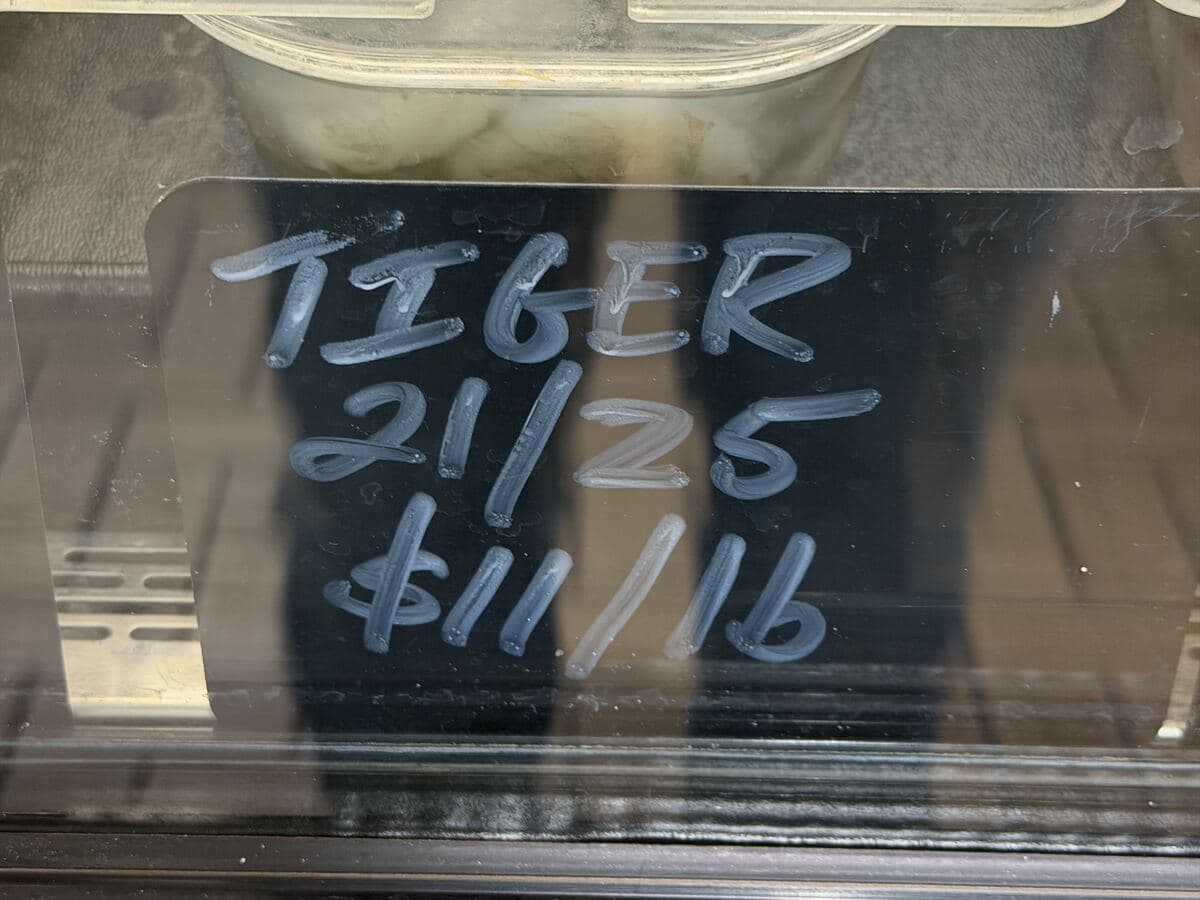 TIGER
21/25
$11/lb